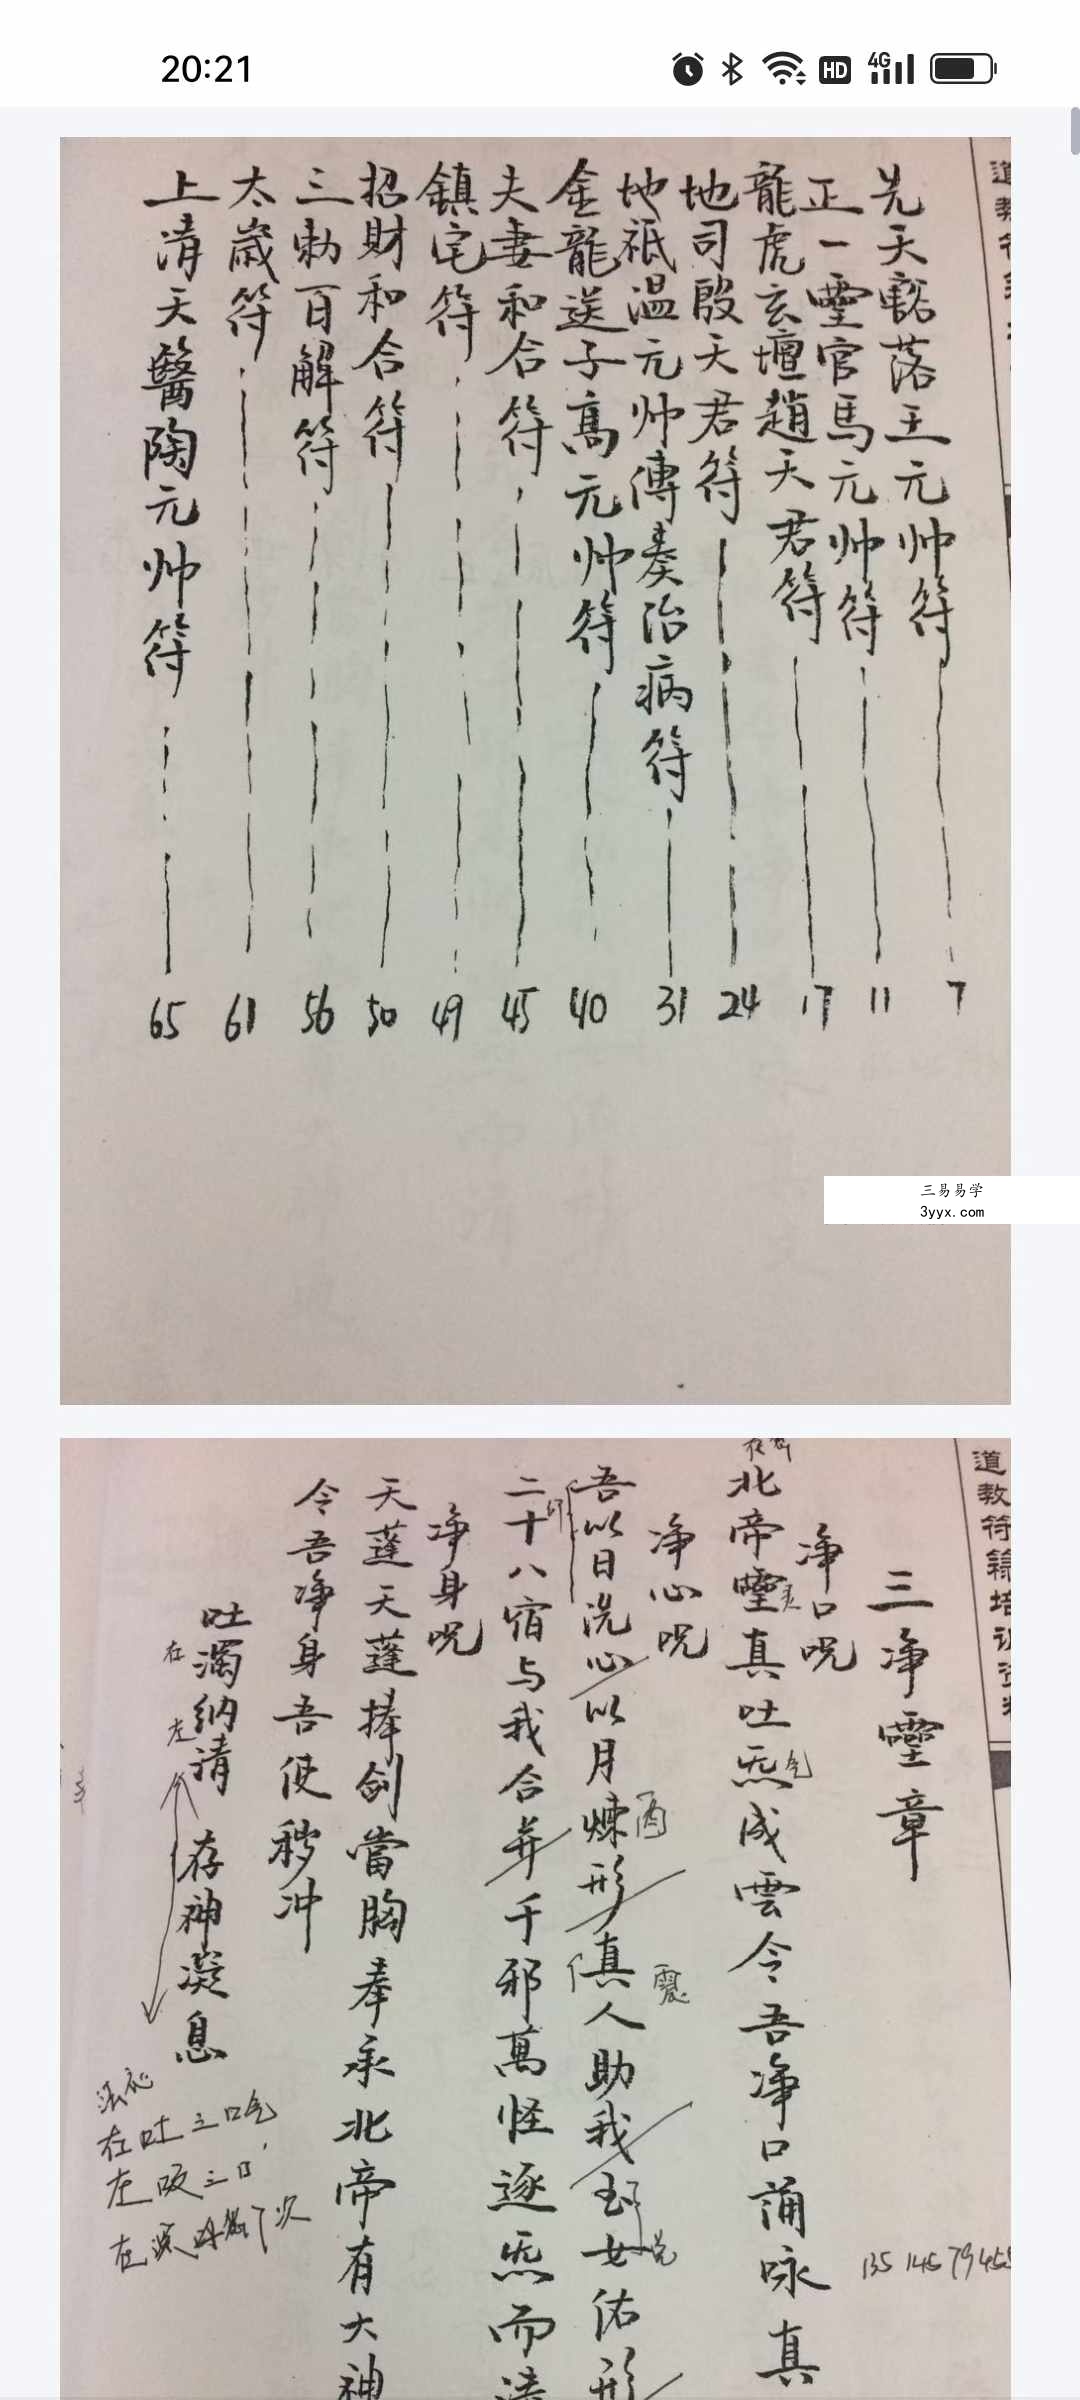 20:21
HD
4G
先天豁落王元帅符 7
正一靈官馬元帅符 11
龍虎玄壇趙天君符 17
地司殷天君符 24
地祇温元帅傳奏治病符 31
金龍送子高元帅符 40
夫妻和合符 45
鎮宅符 49
招財和合符 50
三勅百解符 56
太歲符 61
上清天醫陶元帅符 65
三易易学
3yyx.com
道教符籙培训资料
三净靈章
净口呪
北帝靈真吐炁成雲令吾净口誦咏真
灵
气
净心呪
吾以日洗心以月煉形真人助我玉女佑形
酉
震
二十八宿与我合并千邪萬怪逐炁而清
印
净身呪
天蓬天蓬捧剑當胸奉承北帝有大神
令吾净身吾使秽冲
吐濁纳清 存神凝息
右
左
右吐三口气
左吸三口
135 145 79 455